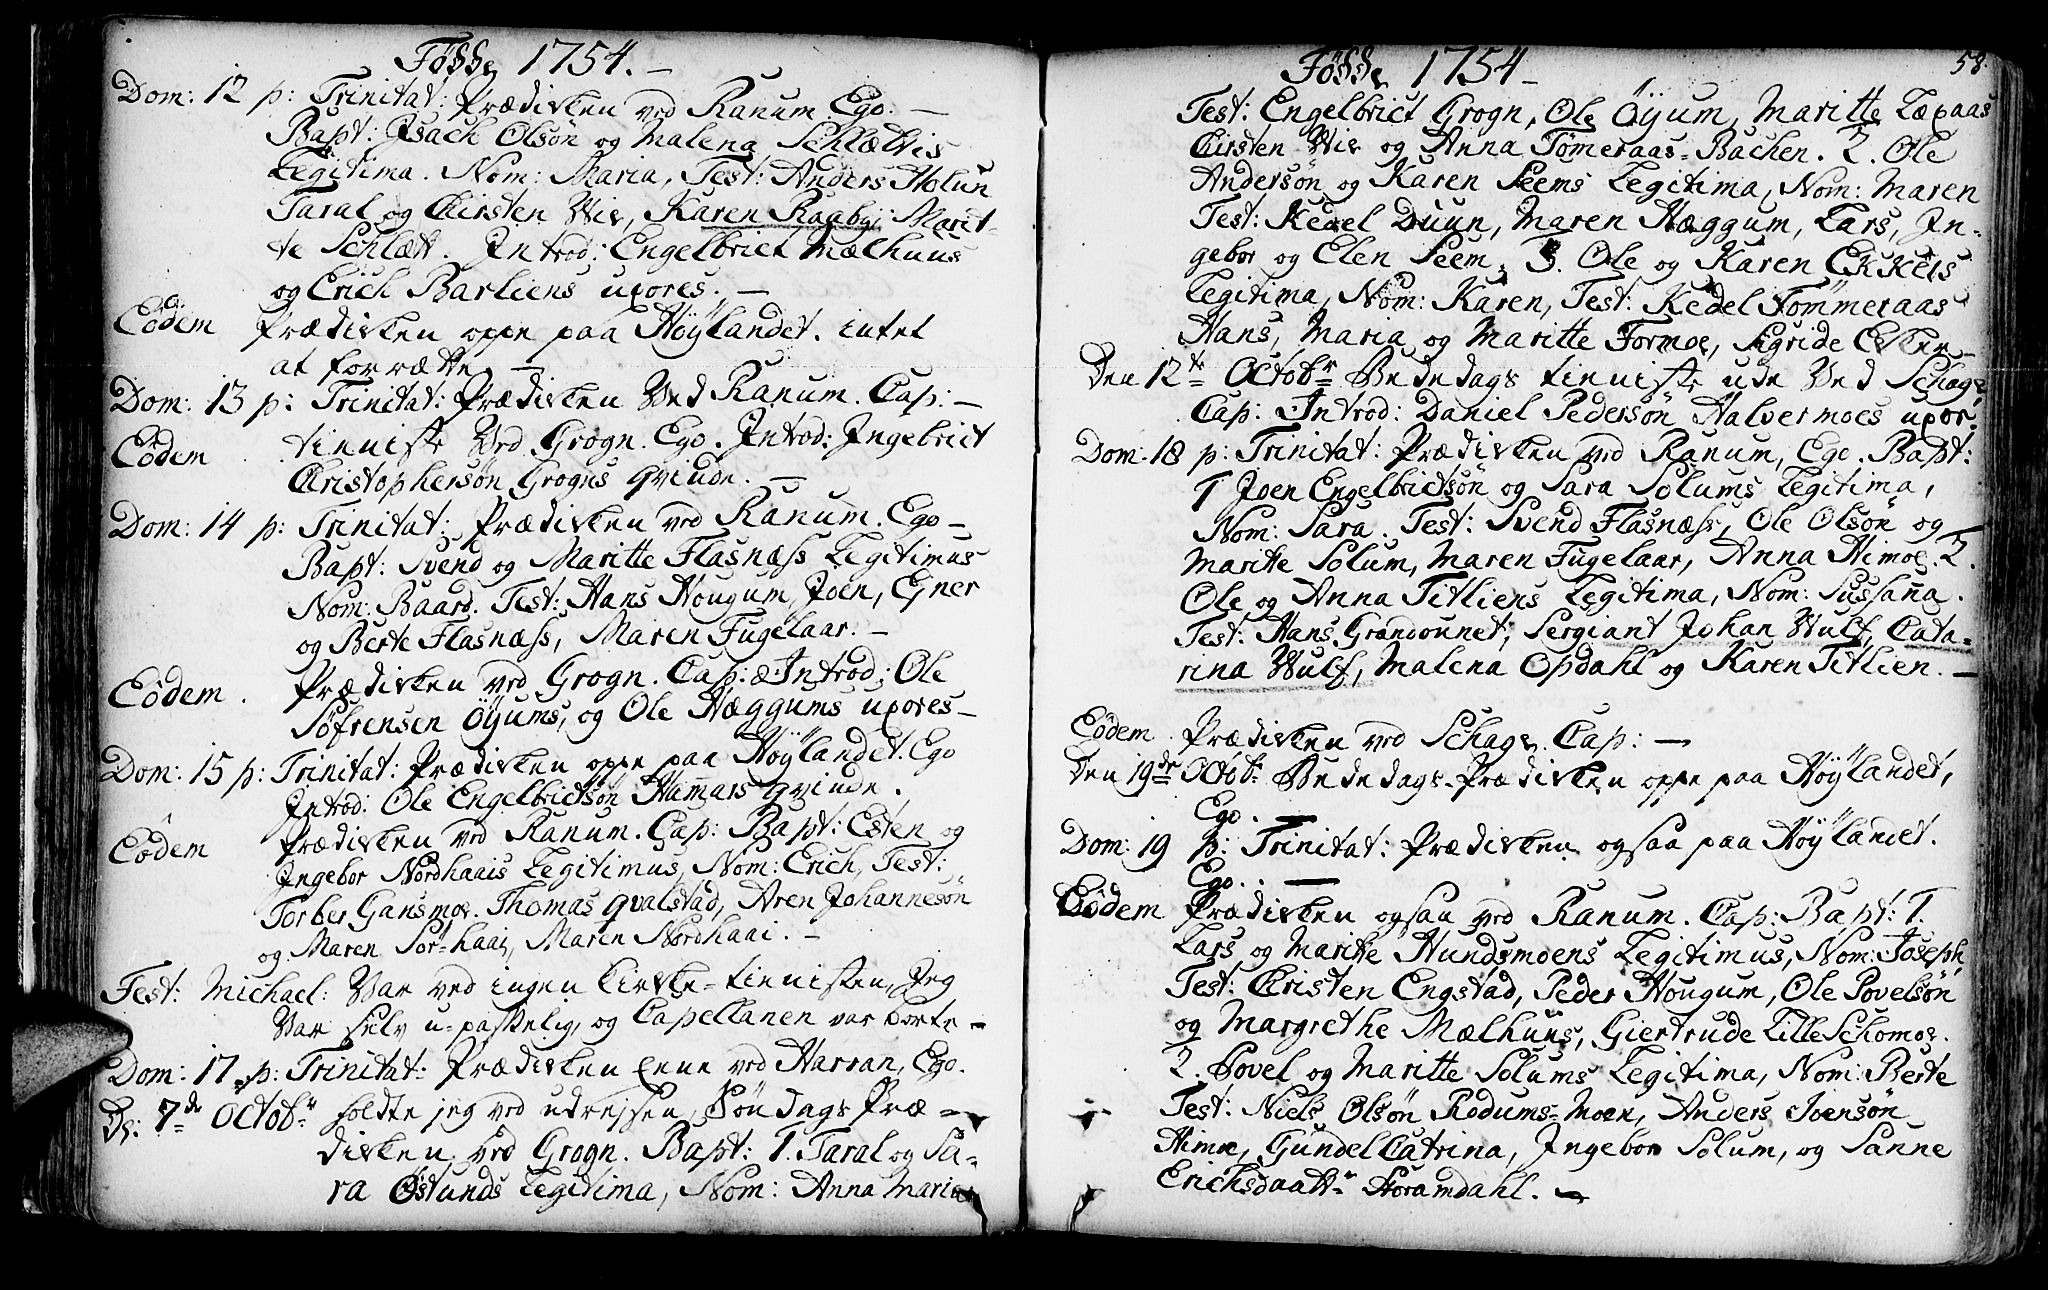 Fødde 1754. —
Dom: 12 p: Trinitat: Prædiken ved Ranum. Ego. —
Bapt: Isach Olsøn og Malena Schlætvis
Legitima. Nom: Maria, Test: Anders Holun
Taral og Kirsten Wie, Karen Raabye Marit-
te Schlætt. Introd: Engelbrict Mælhuus
og Erich Barliens uxores. —
Eôdem Prædiken oppe paa Høÿlandet. intet
at forrætte —
Dom: 13 p: Trinitat: Prædiken Ved Ranum. Cap: —
Eôdem tienniste Ved Grogn. Ego. Introd: Ingebrict
Christophersøn Grogns qvinde. —
Dom: 14 p: Trinitat: Prædiken ved Ranum. Ego —
Bapt: Svend og Maritte Flasnæss Legitimus
Nom: Baard. Test: Hans Hougum, Joen, Ejner
og Berte Flasnæss, Maren Fugelaar. —
Eôdem. Prædiken ved Grogn. Cap: & Introd: Ole
Søfrensen Öÿums, og Ole Hæggums uxores —
Dom: 15 p: Trinitat: Prædiken oppe paa Høÿlandet. Ego
Introd: Ole Engelbrictsøn Ham̄ars qvinde.
Eôdem Prædiken ved Ranum. Cap: Bapt: Esten og
Ingebor Nordhaais Legitimus, Nom: Erich, Test:
Torber Gansmoe. Thomas qvalstad, Aren Johannesøn
og Maren Sør-haai, Maren Nordhaai. —
Fest: Michael: Var ved ingen kirke-tiennisten, Jeg
Var selv u-passelig, og Capellanen var borte —
Dom: 17. p: Trinitat: Prædiken Enne ved Harran, Ego.
D: 7de Octobr holdte jeg ved udrejsen, Søndags Præ-
diken ved Grogn. Bapt: 1. Taral og Sa-
ra Østunds Legitima, Nom: Anna Maria
Fødde 1754 — 58
Test: Engelbrict Grogn, Ole Öÿum, Maritte Læpaas
Kirsten Wie og Anna Tømeraas-Bachen. 2. Ole
Andersøn og Karen Seems Legitima, Nom: Maren
Test: Kedel Duun, Maren Hæggum, Lars, In-
gebor og Elen Seem. 3. Ole og Karen Ekkers
Legitima, Nom: Karen, Test: Kedel Tømmeraas
Hans, Maria og Maritte Formoe, Sigride Ekker —
Den 12te Octobr Bededags tienniste ude Ved Schage
Cap: Introd: Daniel Pedersøn Halvermoes uxor.
Dom. 18 p: Trinitat: Prædiken ved Ranum, Ego. Bapt:
1 Joen Engelbrictsøn og Sara Solums Legitima,
Nom: Sara. Test: Svend Flasnæss, Ole Olsøn og
Marite Solum, Maren Fugelaar, Anna Himoe. 2.
Ole og Anna Titliens Legitima, Nom: Sussan̄a.
Test: Hans Grandounet, Sergiant Johan Wulf, Cata-
rina Wulf, Malena Opdahl og Karen Titlien. —
Eôdem. Prædiken ved Schage. Cap: —
Den 19de Octobr Bededags-Prædiken oppe paa Høÿlandet,
Ego. —
Dom: 19 p: Trinitat: Prædiken ogsaa paa Høÿlandet.
Ego. —
Eôdem Prædiken ogsaa ved Ranum. Cap: Bapt: 1.
Lars og Marite Hundsmoens Legitimus, Nom: Joseph,
Test: Kristen Engstad, Peder Hougum, Ole Povelsøn
og Margrethe Mælhuus, Giertrude Lille Schomoe.
2. Povel og Maritte Solums Legitima, Nom: Berte
Test: Niels Olsøn Rodums-Moen, Anders Joensøn
Himoe, Gundel Catrina, Ingebor Solum, og Sanne
Erichsdaattr Storamdahl. —